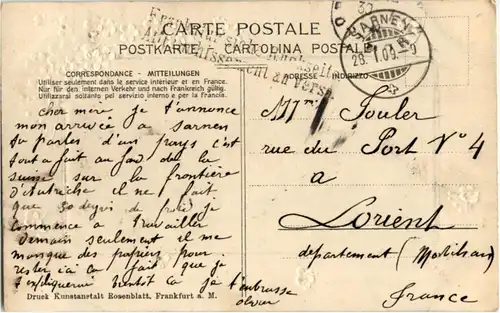 CARTE POSTALE
POSTKARTE - CARTOLINA POSTALE
CORRESPONDANCE - MITTEILUNGEN
Utiliser seulement dans le service intérieur et en France.
Nur für den internen Verkehr und nach Frankreich gültig.
Utilizzarsi soltanto pel servizio interno e per la Francia.
ADRESSE - INDIRIZZO
SARNEN
cher mère je t'annonce
mon arrivée a Sarnen
tu parles d'un pays c'est
tout a fait au fond de la
suisse sur la frontière
d'Autriche il ne fait
que 30 degrés de froid je
commence a travailler
Demain seulement il me
manque des papiers pour
rester ici ca fait que je
t'expliquerai bientôt ca je t'embrasse
olivier
Mme Pouler
rue du Port N° 4
a
Lorient
departement (Morbihan)
france
Druck Kunstanstalt Rosenblatt, Frankfurt a. M.